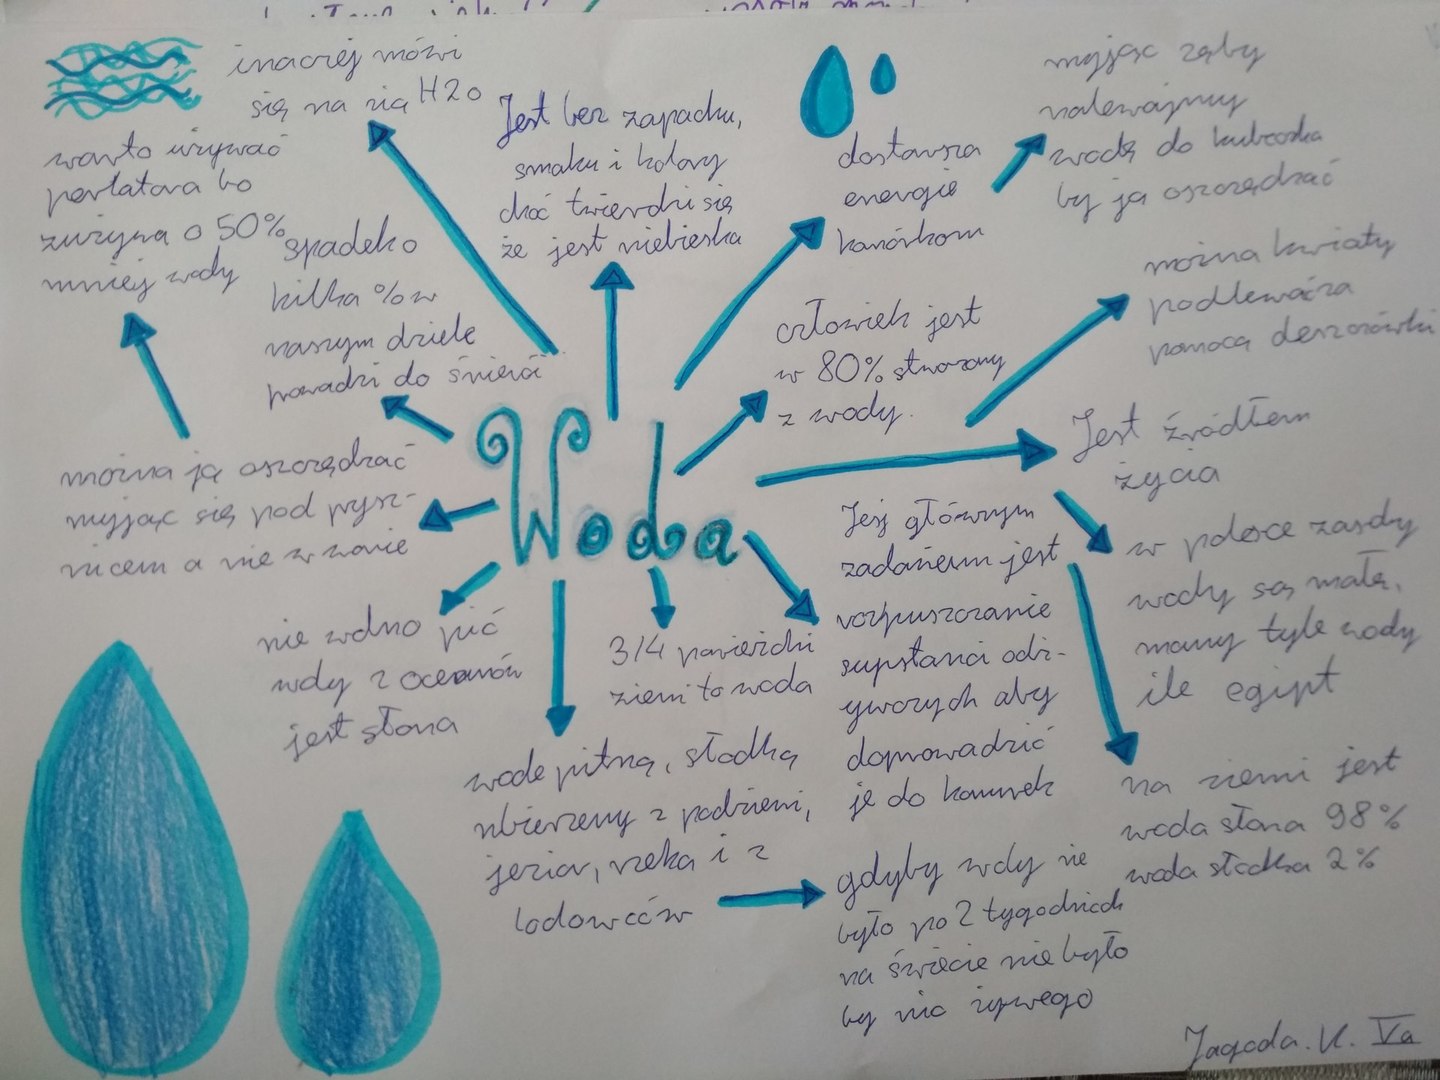 inaczej mówi
się na nią H2O
warto używać
perlatora bo
zużywa o 50%
mniej wody
spadek o
kilka % w
naszym dziele
prowadzi do śmierci
Jest bez zapachu,
smaku i koloru
choć twierdzi się
że jest niebieska
dostarsza
energie
komórkom
myjąc zęby
nalewajmy
wodę do kubeczka
by ją oszczędzać
człowiek jest
w 80% stworzony
z wody.
można kwiaty
podlewać za
pomocą deszczówki
Jest źródłem
życia
Woda
można ją oszczędzać
myjąc się pod prysz-
nicem a nie w wanie
nie wolno pić
wdy z oceanów
jest słona
3/4 powierzchni
ziemi to woda
Jej głównym
zadaniem jest
rozpuszczanie
supstanci odż-
ywczych aby
doprowadzić
je do komurek
w polsce zasoby
wody są małe.
mamy tyle wody
ile egipt
na ziemi jest
woda słona 98%
woda słodka 2%
wode pitną, słodką
nbierzemy z podziemi,
jezior, rzeka i z
lodowców
gdyby wdy nie
było po 2 tygodniach
na świecie nie było
by nic żywego
Jagoda. K. Va